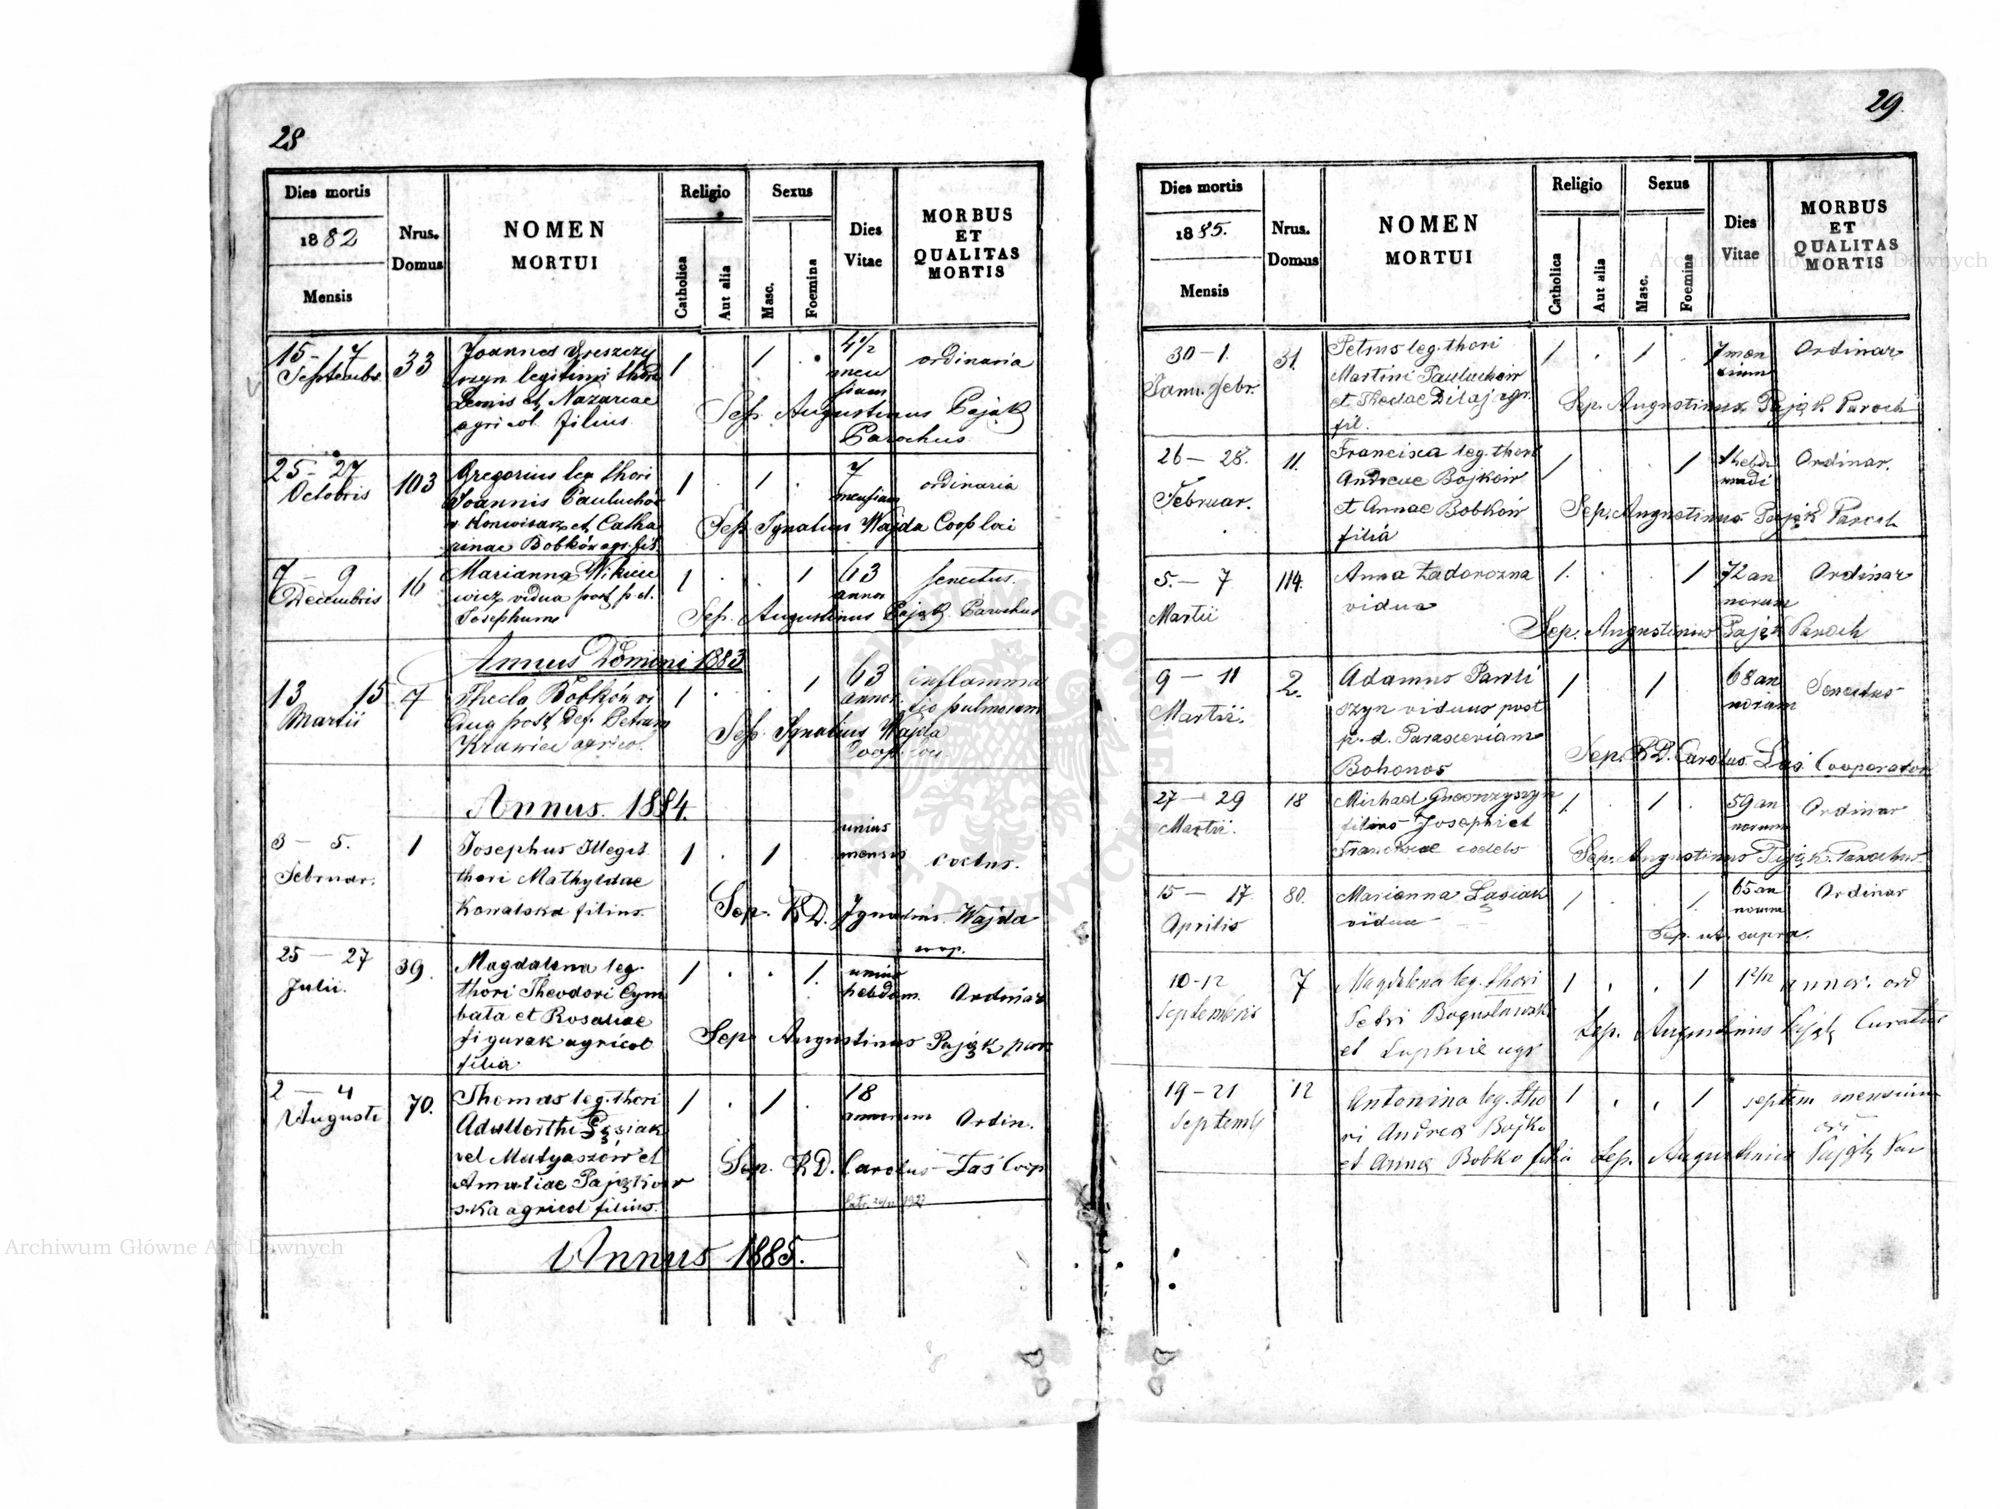 28
Dies mortis
1882
Mensis
Nrus.
Domus
NOMEN
MORTUI
Religio
Catholica
Aut alia
Sexus
Masc.
Foemina
Dies
Vitae
MORBUS
ET
QUALITAS
MORTIS
15 - 17
Septembr
33
Joannes
legitimi thori
et Nazariae
agricol. filius
1 . 1 .
4 1/2
ordinaria
Sep. Augustinus Pająk
Parochus
25 - 27
Octobris
103
Gregorius leg thori
Joannis Pauluchów
et Catha
rinae Bobków agr. fil.
1 . 1 .
7
mensium
ordinaria
Sep. Ignatius Wajda Coop loci
7 - 9
Decembris
16
Marianna
wicz vidua post p. d.
Josephum
1 . . 1
63
annor
senectus.
Sep. Augustinus Pająk Parochus
Annus Domini 1883
13 15
Martii
7
Thecla Bobków vi
dua post def. Petrum
Krawiec agricol.
1 . . 1
63
annor.
inflamma
tio pulmorum
Sep. Ignatius Wajda
Coop loci
Annus 1884.
3 - 5.
Februar.
1
Josephus Illegit.
thori Mathyldae
Kowalska filius.
1 . 1 .
unius
mensis
coctus.
Sep. R.D. Ignatius Wajda
coop.
25 - 27
Julii.
39.
Magdalena leg.
thori Theodori Cym
bała et Rosaliae
figurak agricol
filia
1 . . 1.
unius
hebdom.
Ordinar
Sep. Augustinus Pająk par
2 - 4
Augusti
70.
Thomas leg. thori
Adalberthi
vel Matyaszów et
Amaliae
ska agricol filius.
1 . 1 .
18
annorum
Ordin.
Sep. R.D. Carolus Las Coop
Annus 1885.
29.
Dies mortis
1885.
Mensis
Nrus.
Domus
NOMEN
MORTUI
Religio
Catholica
Aut alia
Sexus
Masc.
Foemina
Dies
Vitae
MORBUS
ET
QUALITAS
MORTIS
30 - 1.
Janu. Febr.
31.
Petrus leg. thori
Martini Pauluchów
et Theclae Dilaj agr.
fil.
1 . 1 .
7 men
sium
Ordinar
Sep. Augustinus Pająk Paroch
26 - 28.
Februar.
11.
Francisca leg. thori
Andreae Bojków
et Annae Bobków
filia
1 . . 1
1 hebdo
madi
Ordinar.
Sep. Augustinus Pająk Paroch
5. - 7
Martii
114.
Anna Zadorozna
vidua
1. . . 1
72 an
norum
Ordinar
Sep. Augustinus Pająk Paroch
9 - 11
Martii.
2.
Adamus Pawli
szyn viduus post
p. d. Parasceviam
Bohonos
1 . 1 .
68 an
norum
Senectus
Sep. R.D. Carolus Las Cooperator
27 - 29
Martii.
18
Michael
filius Josephi et
Franciscae
1 . 1 .
59 an
norum
Ordinar
Sep. Augustinus Pająk Parochus.
15 - 17
Aprilis
80.
Marianna Lasiak
vidua
1 . . 1.
65 an
norum
Ordinar
Sep. ut supra.
10-12
Septembris
7
Magdalena leg. thori
Petri Bogusławski
et agr
1 . . 1
1 2/12 annor. ord
Sep. Augustinus Pająk Curatus
19-21
Septemb
12
Antonina leg. tho
ri Andrea Bojko
et Anna Bobko filia
1 . . 1
septem mensium
ord
Sep. Augustinus Pająk Par
Archiwum Główne Akt Dawnych
Archiwum Główne Akt Dawnych
ARCHIWUM GŁÓWNE AKT DAWNYCH